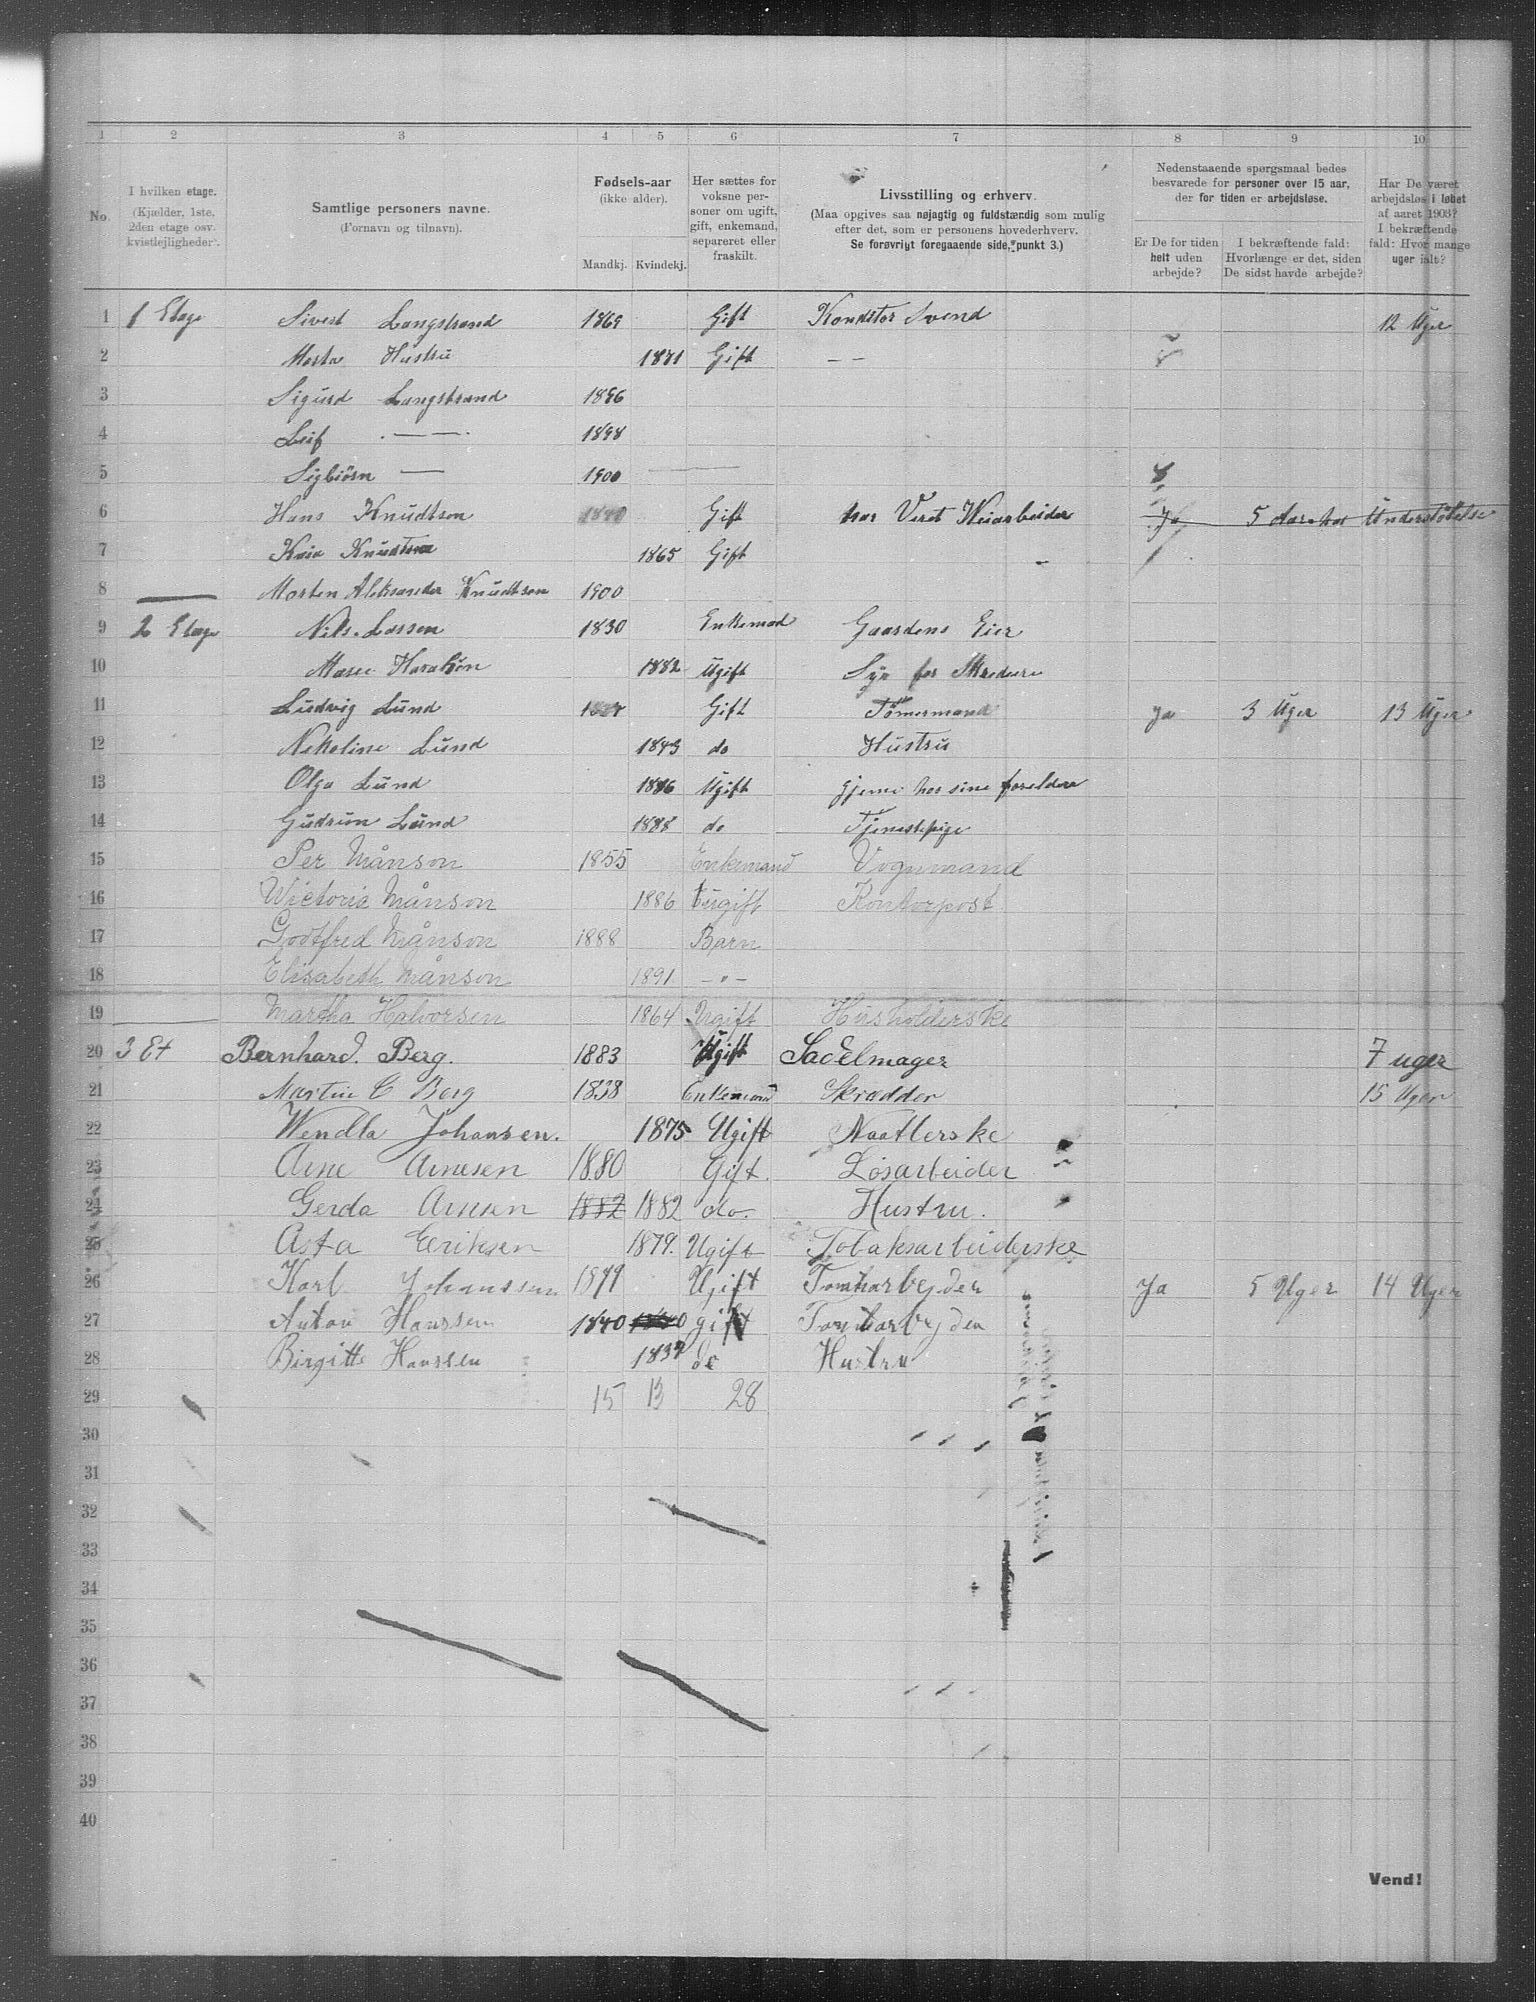 1 2 3 4 5 6 7 8 9 10
No. I hvilken etage. (Kjælder, 1ste, 2den etage osv. kvistlejligheder). Samtlige personers navne. (Fornavn og tilnavn). Fødsels-aar (ikke alder). Mandkj. Kvindekj. Her sættes for voksne personer om ugift, gift, enkemand, separeret eller fraskilt. Livsstilling og erhverv. (Maa opgives saa nøjagtig og fuldstændig som mulig efter det, som er personens hovederhverv. Se forøvrigt foregaaende side, punkt 3.) Nedenstaaende spørgsmaal bedes besvarede for personer over 15 aar, der for tiden er arbejdsløse. Er De for tiden helt uden arbejde? I bekræftende fald: Hvorlænge er det, siden De sidst havde arbejde? Har De været arbejdsløs i løbet af aaret 1903? I bekræftende fald: Hvor mange uger ialt?
1 1 Etage Sivert Langstrand 1869 Gift Konditor Svend 12 Uger
2 Marta Hustru 1871 Gift — —
3 Sigurd Langstrand 1896
4 Leif —— 1898
5 Sigbiörn — 1900
6 Hans Knudtson 1840 Gift har Veret Veiarbeider Ja 5 Aar Understötelse
7 Knudtson 1865 Gift
8 Morten Aleksander Knudtson 1900
9 2 Etage Nils Lassen 1830 Enkemad Gaardens Eier
10 1882 Ugift Syr for
11 Ludvig Lund Gift Tömermand Ja 3 Uger 13 Uger
12 Nikoline Lund 1843 do Hustru
13 Olga Lund 1886 Ugift hjeme hos sine foreldre
14 Gudrun Lund 1888 do Tjenestepige
15 Per Månson 1855 Enkemand Vognmand
16 Wictoria Månson 1886 Eugift Kontorpost
17 Godtfred Månson 1888 Barn
18 Elisabeth Månson 1891 —"—
19 Martha Halvorsen 1864 Ugift Husholderske
20 3 Et Bernhard. Berg. 1883 Ugift Sadelmager 7 uger
21 Martin C Berg 1838 Enkemand Skrædder 15 Uger
22 Wendla Johansen. 1875 Ugift Naatlerske
23 Arne Arnesen 1880 Gift. Løsarbeider
24 Gerda Arnesen 1882 1882 do. Hustru.
25 Asta Eriksen 1879. Ugift Tobaksarbeiderske
26 Karl Johanssen 1879 Ugift Tomtarbejder Ja 5 Uger 14 Uger
27 Anton Hanssen 1840 1840 gift Tomtarbejder
28 Birgitte Hanssen 1837 do Hustru
29 15 13 28
30
31
32
33
34
35
36
37
38
39
40
Vend!